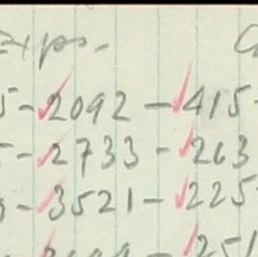 Exps. C
5-2092-415-
5-2733-263
0-3521-225
251